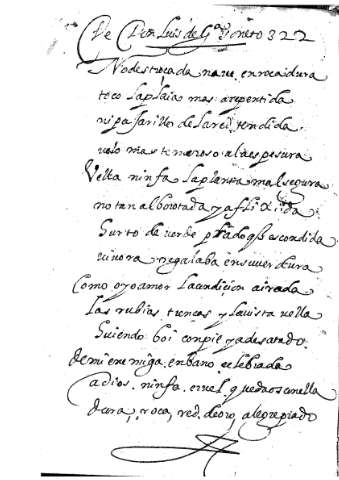 De Don Luis de Gª. Soneto 322
No destroçada naue en roca dura
toco la plaia mas arepentida
ni pajarillo de la red tendida
volo mas temeroso al a espesura
Vella ninfa la planta mal segura
no tan alborotada y aflixida
hurto de verde prado q escondida
viuora regalaba en su verdura
Como yo amor la condicion airada
las rubias trenças y la uista vella
huiendo boi con pie ya desatado
de mi enemiga en bano celebrada
a dios ninfa cruel quedaos con ella
dura roca red de oro alegre prado